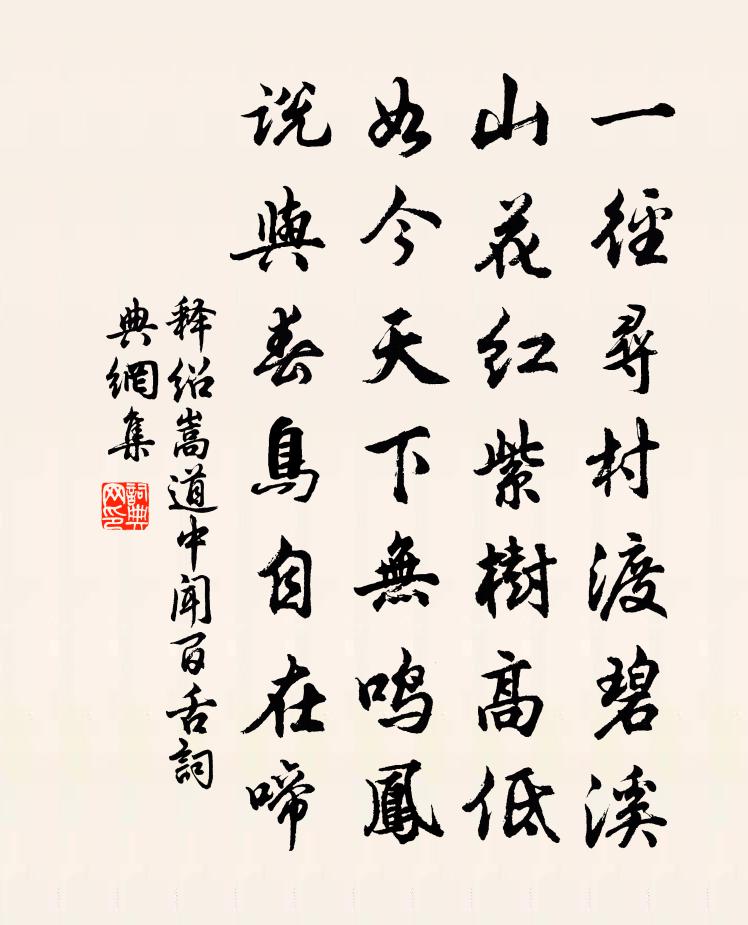 一徑尋村渡碧溪
山花红紫樹高低
如今天下無鸣鳳
说與春鳥自在啼
释绍嵩道中闻百舌詞
典網集
詞典网印